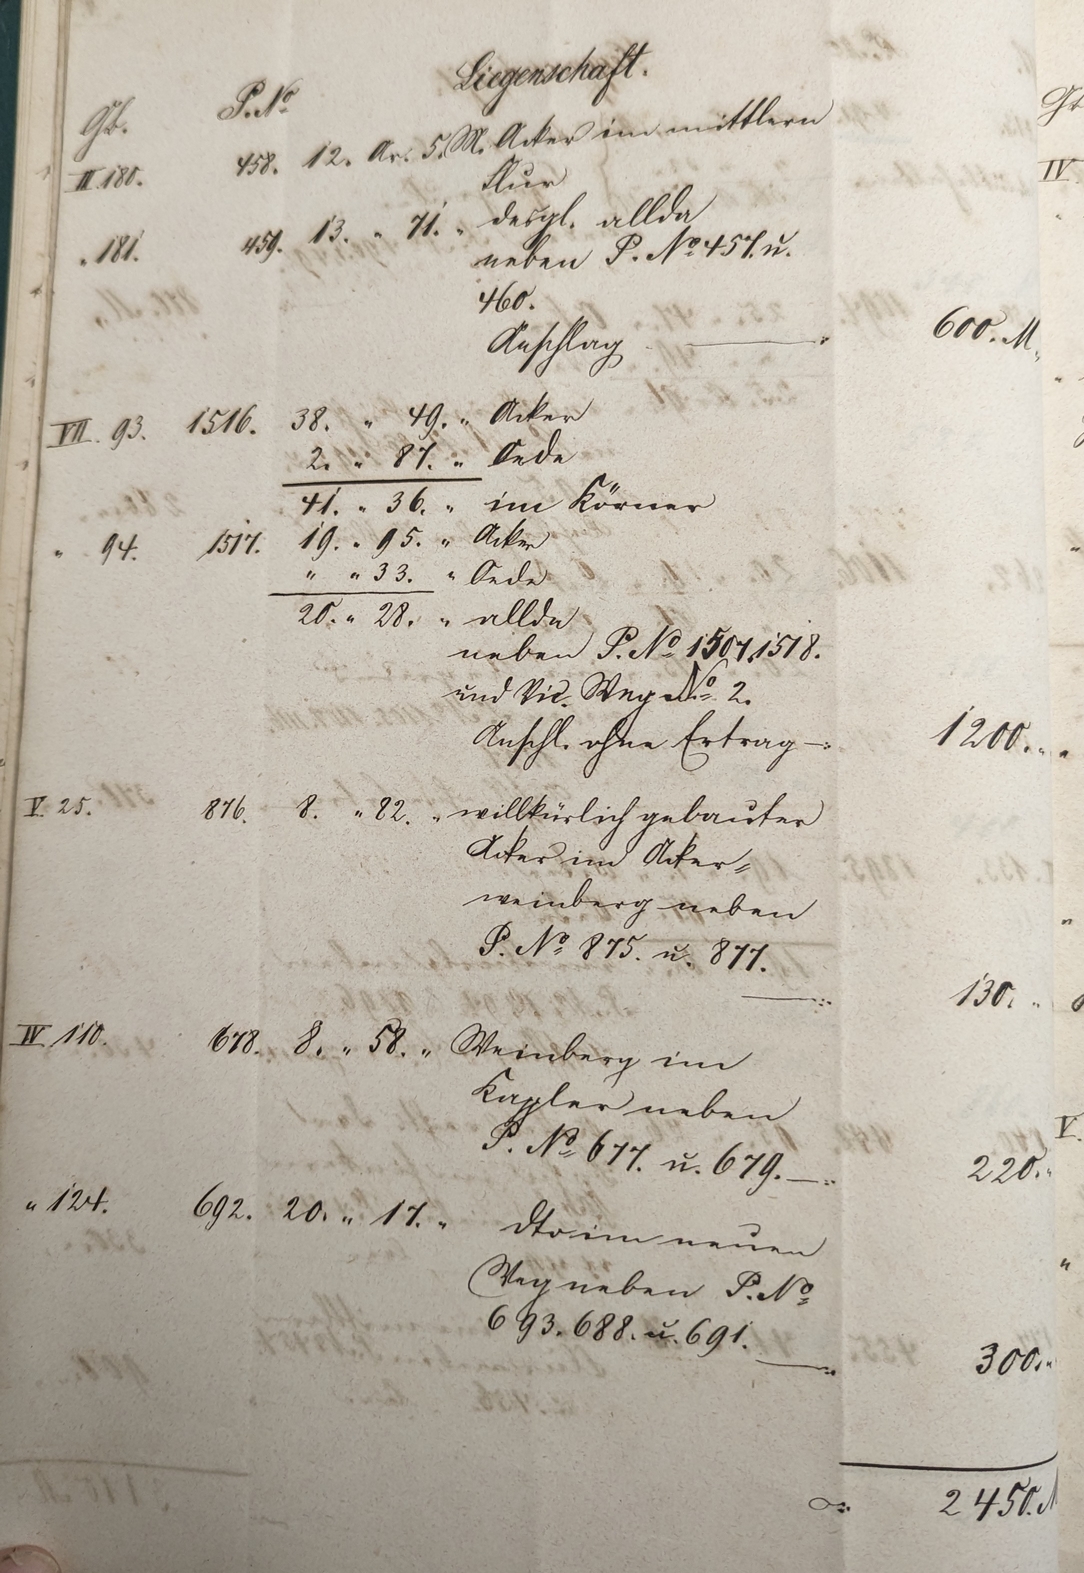 Liegenschaft.
Gb. P. No
III 180. 458. 12. Ar. 5. M. Acker im mittlern
Flur
„ 181. 459. 13. „ 71. „ desgl. allda
neben P. No 457. u.
460.
Anschlag 600. M.
VII. 93. 1516. 38. „ 49. „ Acker
2. „ 87. „ Oede
41. „ 36. „ im Körner
„ 94. 1517. 19. „ 95. „ Acker
„ „ 33. „ Oede
20. „ 28. „ allda
neben P. No 1507, 1518.
und Vic. Weg No 2.
Anschl. ohne Ertrag 1200. „
V. 25. 876. 8. „ 82. „ willkürlich gebauter
Acker im Acker=
weinberg neben
P. No 875. u. 877.
130. „
IV 110. 678. 8. „ 58. „ Weinberg im
Kapler neben
P. No 677. u. 679. 220. „
„ 124. 692. 20. „ 17. „ dto im neuen
Weg neben P. No
693. 688. u. 691.
300. „
2450. M